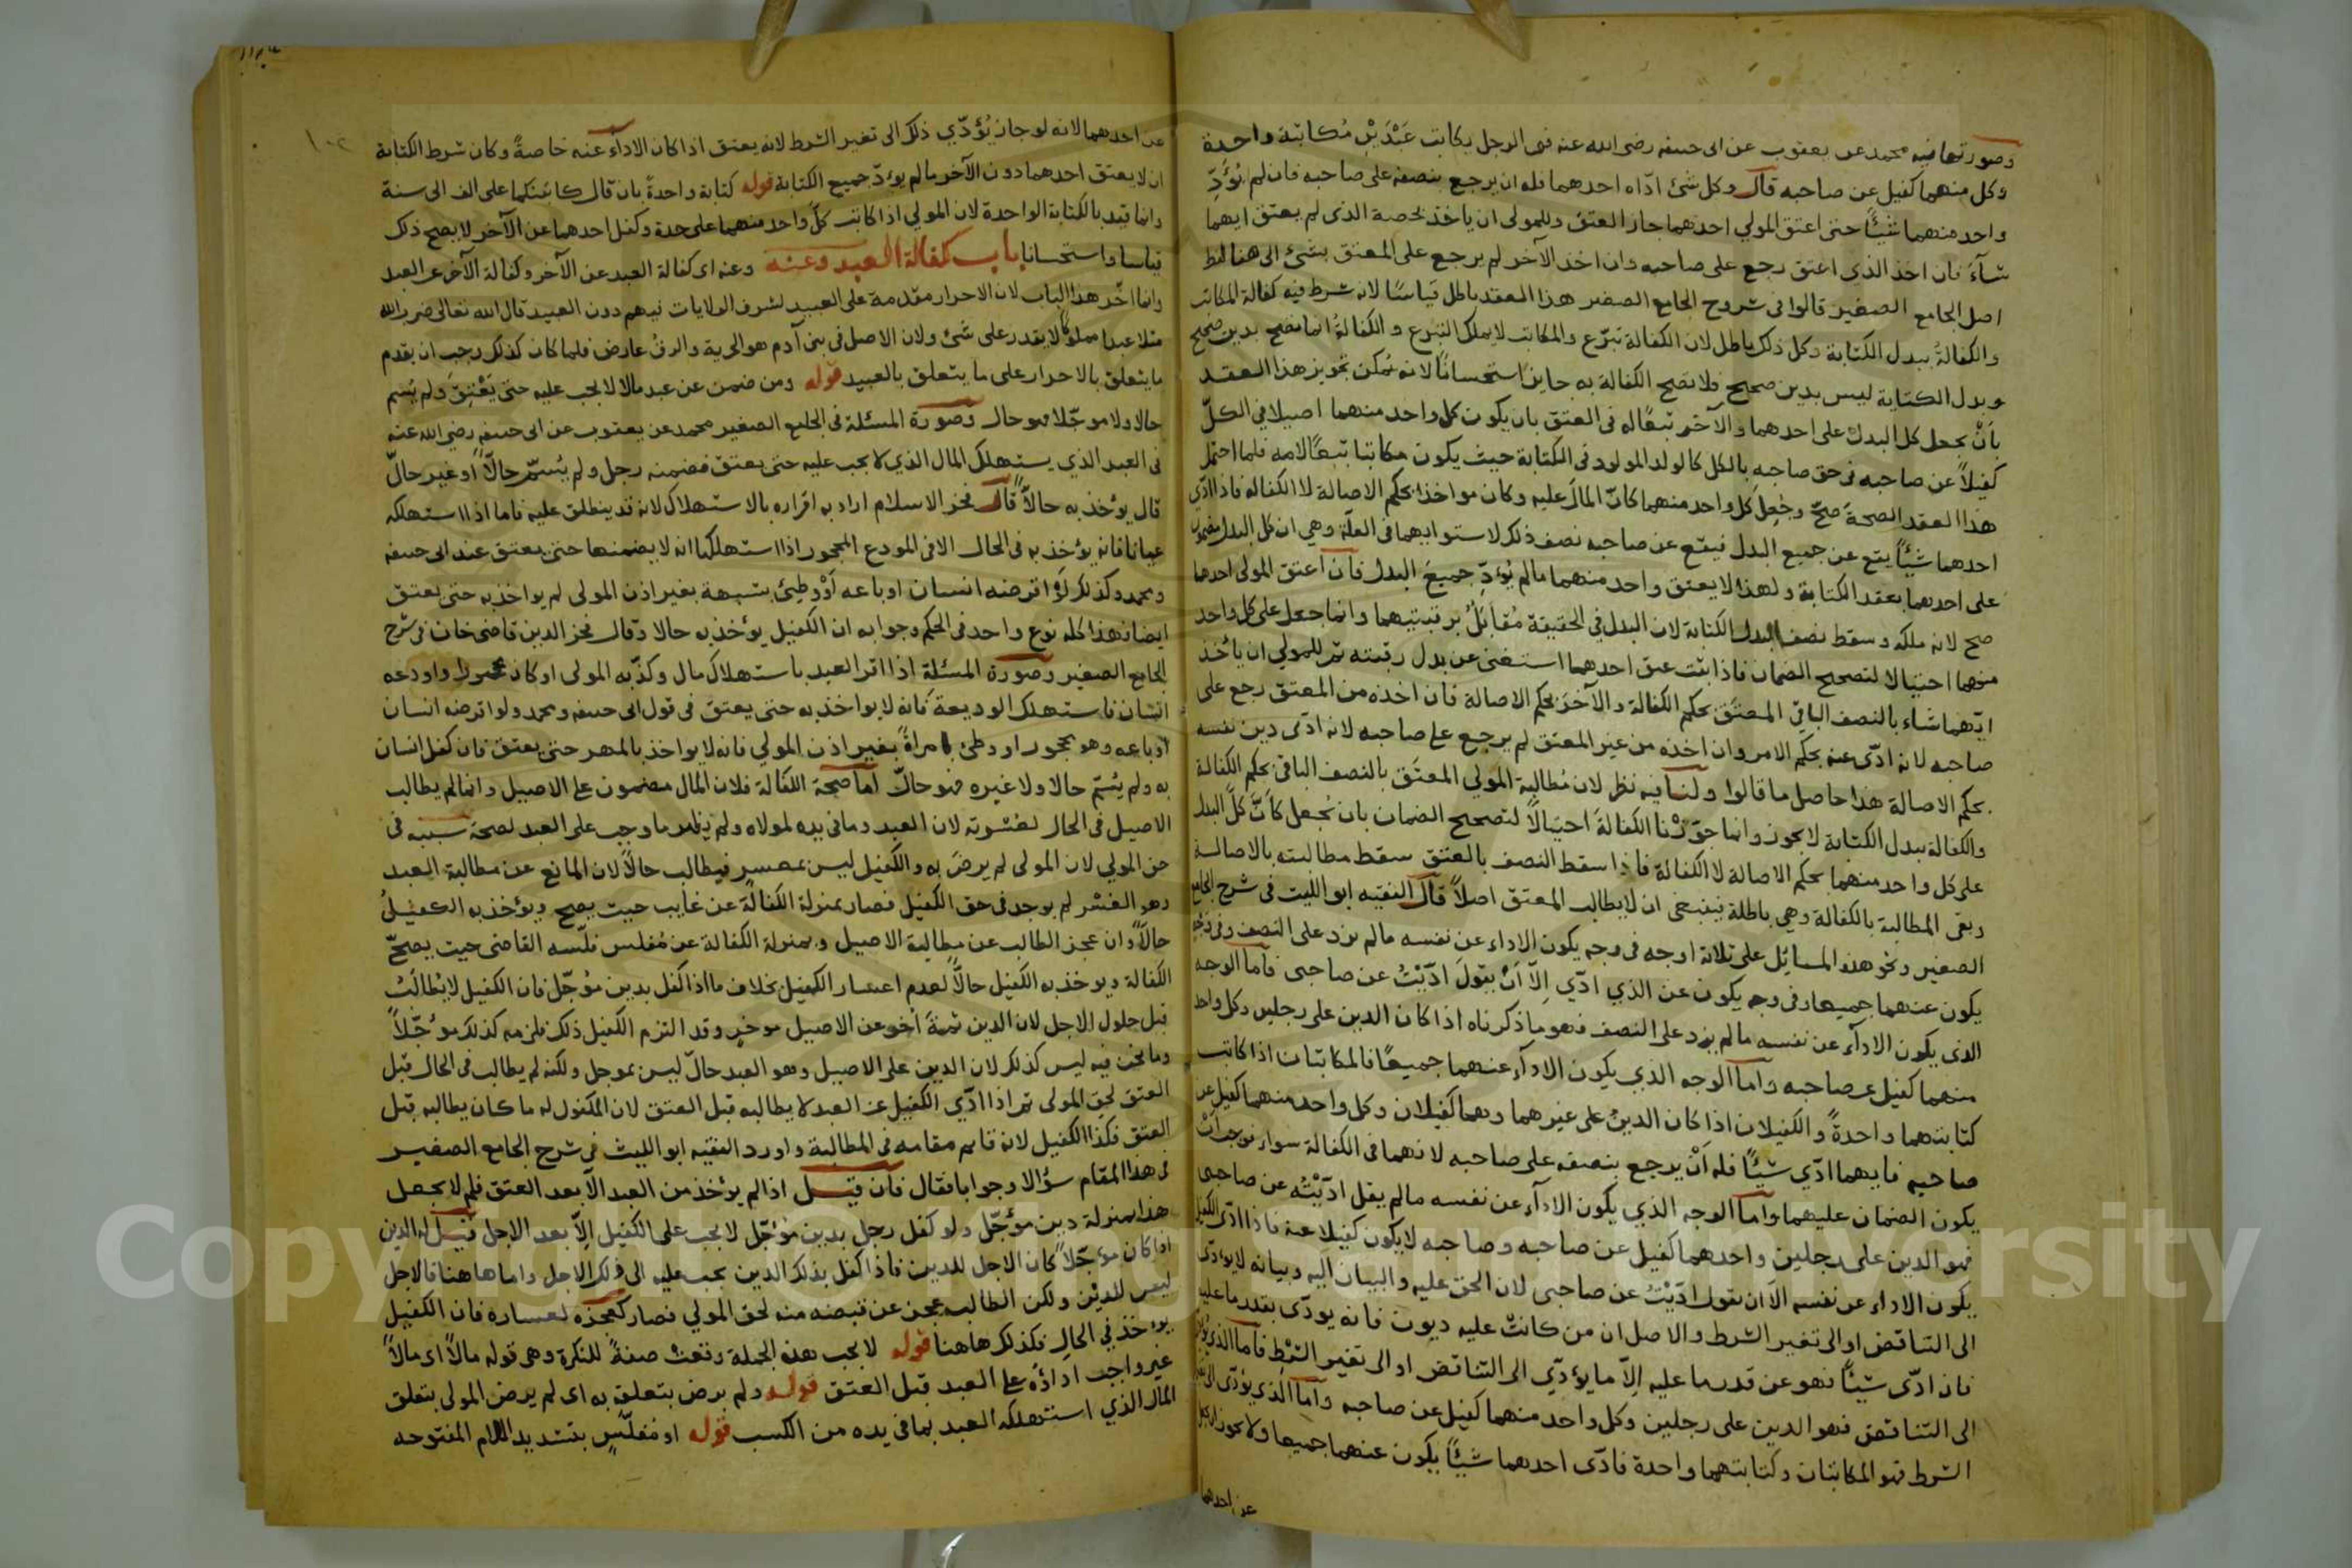 وصورتها فيه محمد عن يعقوب عن ابى حنيفه رضى الله عنه فى الرجل يكاتب عَبْدَيْنِ مُكاتبة واحدة
وكل منهما كفيل عن صاحبه قال وكل شئ ادّاه احدهما فله ان يرجع بنصفه على صاحبه فان لم يُؤَدِّ
واحد منهما شَيْئًا حتى اعتق المولي احدهما جاز العتق وللمولى ان ياخذ بحصة الذى لم يعتق ايهما
شآءَ فان اخذ الذى اعتق رجع على صاحبه وان اخذ الآخر لم يرجع على المعتق بشئ الى هنا لفظ
اصل الجامع الصغير قالوا فى شروح الجامع الصغير هذا العقد باطل قياسًا لانه شرط فيه كفالة المكاتب
والكفالةُ ببدل الكتابة وكل ذلك باطل لان الكفالة تبرّع والمكاتب لا يملك التبرع و الكفالةُ انما تصح بدين صحيح
وبدل الكتابة ليس بدين صحيح فلا تصح الكفالة به جايز استحسانًا لانه يُمكن تجويز هذا العقد
بأنْ يجعل كل البدل على احدهما والآخر تبعًا له فى العتق بان يكون كل واحد منهما اصيلا فى الكلّ
كفيلاً عن صاحبه فى حق صاحبه بالكل كالولد المولود فى الكتابة حيث يكون مكاتبا تبعًا لامه فلما احتمل
هذا العقد الصحةَ صحّ وجُعِل كل واحد منهما كانّ المالَ عليه وكان مواخذا بحكم الاصالة لا الكفالة فاذا ادّى
احدهما شَيْئًا يقع عن جميع البدل فيقع عن صاحبه نصف ذلك لاستوايهما فى العلّة وهي ان كل البدل مضمون
على احدهما بعقد الكتابة ولهذا لا يعتق واحد منهما مالم يُؤدِّ جميعَ البدل فان اعتق المولى احدهما
صح لانه ملكه وسقط نصف البدل الكتابة لان البدل في الحقيقة مُقابَلٌ برقبتيهما وانما جعل على كل واحد
منهما احتيالا لتصحيح الضمان فاذا ثبت عتق احدهما استغنى عن بدل رقبته ثم للمولي ان يأخذ
ايّهما شاء بالنصف الباقي المعتَق بحكم الكفالة والآخرَ بحكم الاصالة فان اخذه من المعتق رجع على
صاحبه لانه ادّى عنه بحكم الامر وان اخذه من غير المعتق لم يرجع على صاحبه لانه ادّى دين نفسه
بحكم الاصالة هذا حاصل ما قالوا ولنا فيه نظر لان مُطالبة المولي المعتَق بالنصف الباقى بحكم الكفالة
والكفالة ببدل الكتابة لا يجوز وانما جوّزْنا الكفالةَ احتيالًا لتصحيح الضمان بان يُجعل كانّ كلّ البدل
على كل واحد منهما بحكم الاصالة لا الكفالة فاذا سقط النصف بالعتق سقط مطالبته بالاصالة
وبقى المطالبة بالكفالة وهي باطلة فينبغى ان لا يطالب المعتق اصلاً قال الفقيه ابو الليث فى شرح الجامع
الصغير ونحو هذه المسائل على ثلاثة اوجه فى وجه يكون الاداء عن نفسه مالم يزد على النصف وفى وجه
يكون عنهما جميعا وفى وجه يكون عن الذي ادّي اِلاّ اَنْ يقولَ ادّيْتُ عن صاحبى فاما الوجه
الذى يكون الادآء عن نفسه مالم يزد على النصف فهو ما ذكرناه اذا كان الدين على رجلين وكل واحد
منهما كفيل عن صاحبه واما الوجه الذي يكون الادآء عنهما جميعًا فالمكاتبان اذا كاتب
كتابتهما واحدةً والكفيلان اذا كان الدينُ على غيرهما وهما كفيلان وكل واحد منهما كفيل عن
صاحبه فايهما ادّي شيئًا فله اَنْ يرجع بنصفه على صاحبه لانهما فى الكفالة سواء فوجب اَنْ
يكون الضمان عليهما واما الوجه الذي يكون الادآء عن نفسه مالم يقل ادّيْتُه عن صاحبى
فهو الدين على رجلين واحدهما كفيل عن صاحبه وصاحبه لا يكون كفيلا عنه فاذا ادّى الكفيل
يكون الاداء عن نفسه الا ان يقول ادّيْتُ عن صاحبى لان الحق عليه والبيان اليه وبيانه لا يودّى
الى التناقض او الى تغير الشرط والاصل ان من كانتْ عليه ديون فانه يودّى بقدر ما عليه
فان ادّى شيئًا فهو عن قدر ما عليه اِلاّ ما يؤدّي الى التناقض او الى تغير الشرط فاما الذي يؤدى
الى التناقض فهو الدين على رجلين وكل واحد منهما كفيل عن صاحبه واما الذى يؤدّى الى تغير
الشرط فهو المكاتبان وكتابتهما واحدة فادّى احدهما شيئًا يكون عنهما جميعا ولا يجوز ان يكون
عن احدهما
١٠٢
عن احدهما لانه لو جاز يُؤدّي ذلك الى تغير الشرط لانه يعتق اذا كان الادآء عنه خاصةً وكان شرط الكتابة
ان لا يعتق احدهما دون الآخر مالم يؤدّ جميع الكتابة قوله كتابة واحدةً بان قال كاتبتكما على الف الى سنة
وانما قيد بالكتابة الواحدة لان المولي اذا كاتب كلّ واحد منهما على حدة وكفل احدهما عن الآخر لا يصح ذلك
قياسا واستحسانا باب كفالة العبد وعنه وعنه اى كفالة العبد عن الآخر وكفالة الآخر عن العبد
وانما اخّر هذا الباب لان الاحرار مقدمة على العبيد لشرف الولايات فيهم دون العبيد قال الله تعالى ضرب الله
مثلا عبدا مملوكًا لا يقدر على شئ ولان الاصل فى بنى آدم هو الحرية والرقّ عارض فلما كان كذلك وجب ان يقدم
ما يتعلق بالاحرار على ما يتعلق بالعبيد قوله ومن ضمن عن عبد مالا لا يجب عليه حتى يَعْتِقَ ولم يُسم
حالا ولا موجّلا فهو حال وصورة المسئلة فى الجامع الصغير محمد عن يعقوب عن ابى حنيفه رضى الله عنه
فى العبد الذي يستهلك المال الذي لا يجب عليه حتى يعتق فضمنه رجل ولم يُسمّ حالاًّ او غير حالّ
قال يؤخذ به حالاًّ قال فخر الاسلام اراد به اقراره بالاستهلاك لانه قد ينطلق عليه فاما اذا استهلكه
عيانا فانه يؤخذ به فى الحال الا فى المودع المحجور اذا استهلكها انه لا يضمنها حتى يعتق عند ابى حنيفه
ومحمد وكذلك لَوْ اقرضه انسان او باعه اَوْ وطئ بشبهة بغير اذن المولى لم يواخذ به حتى يعتق
ايضا فهذا كله نوع واحد فى الحكم وجوابه ان الكفيل يؤخذ به حالا وقال فخر الدين قاضى خان فى شرح
الجامع الصغير وصورة المسئلة اذا اقر العبد باستهلاك مال وكذّبه المولى او كان محجورا واودعه
انسان فاستهلك الوديعة فانه لا يواخذ به حتى يعتق فى قول ابى حنيفه ومحمد ولو اقرضه انسان
او باعه وهو محجور او وطئ امراةً بغير اذن المولي فانه لا يواخذ بالمهر حتى يعتق فان كفل انسان
به ولم يُسَمّ حالا ولا غيره فهو حالّ اما صحة الكفالة فلان المال مضمون على الاصيل وانما لم يطالب
الاصيل فى الحال لعُسْرته لان العبد وما فى يده لمولاه ولم يظهر ما وجب على العبد لصحة سببه فى
حق المولي لان المولى لم يرضَ به والكفيل ليس بمعسر فيطالب حالاًّ لان المانع عن مطالبة العبد
وهو العُسْر لم يوجد فى حق الكفيل فصار بمنزلة الكفالة عن غايب حيث يصح ويؤخذ به الكفيلُ
حالاًّ وان عجز الطالب عن مطالبة الاصيل وبمنزلة الكفالة عن مُفلس فلّسه القاضى حيث يصحّ
الكفالة ويوخذ به الكفيل حالاًّ لعدم اعسار الكفيل بخلاف ما اذا كفل بدين مؤجّل فان الكفيل لا يُطالَبُ
قبل حلول الاجل لان الدين ثمةَ اُخر عن الاصيل موخر وقد التزم الكفيل ذلك فلزمه كذلك مؤجّلاً
وما نحن فيه ليس كذلك لان الدين على الاصيل وهو العبد حالّ ليس بموجل ولكنه لم يطالب فى الحال قبل
العتق لحق المولى ثم اذا ادّي الكفيل عن العبد لا يطالبه قبل العتق لان المكفول له ما كان يطالبه قبل
العتق فكذا الكفيل لانه قايم مقامه فى المطالبة واورد الفقيه ابو الليث فى شرح الجامع الصغير
فى هذا المقام سؤالا وجوابا فقال فان قيل اذا لم يؤخذ من العبد الاّ بعد العتق فلم لا يجعل
هذا بمنزلة دين مؤجّل ولو كفل رجل بدين مؤجّل لا يجب على الكفيل اِلاّ بعد الاجل قيل له الدين
اذا كان مؤجّلاً كان الاجل للدين فاذا كفل بذلك الدين يجب عليه الى ذلك الاجل واما هاهنا فالاجل
ليس للديْن ولكن الطالب عجز عن قبضه منه لحق المولي فصار كعجزه لعساره فان الكفيل
يوخذ فى الحال فكذلك هاهنا قوله لا يجب هذه الجملة وقعتْ صفةً للنكرة وهى قوله مالاً اى مالاً
غير واجب اداؤه على العبد قبل العتق قوله ولم يرض بتعلق به اى لم يرض المولى بتعلق
المال الذي استهلكه العبد بما فى يده من الكسب قوله او مُفلّسٍ بتشديد اللام المفتوحه